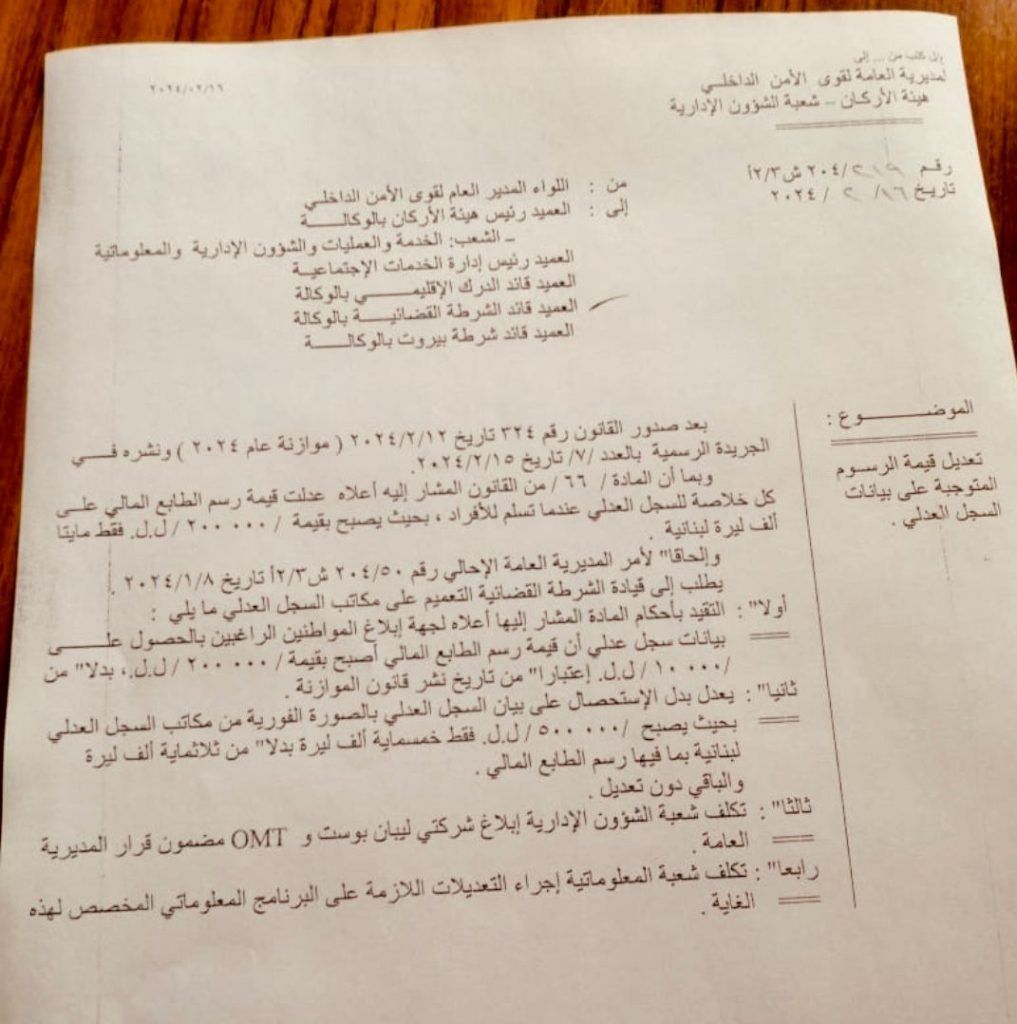 إلى كتب من ... إلى
المديرية العامة لقوى الأمن الداخلي
هيئة الأركان – شعبة الشؤون الإدارية
٢٠٢٤/٠٢/١٦
رقم ٢٠٤/٢١٩ ش٢/٣أ
تاريخ ١٦/ ٢ / ٢٠٢٤
من : اللواء المدير العام لقوى الأمن الداخلي
إلى : العميد رئيس هيئة الأركان بالوكالة
– الشعب: الخدمة والعمليات والشؤون الإدارية والمعلوماتية
العميد رئيس إدارة الخدمات الإجتماعية
العميد قائد الدرك الإقليمي بالوكالة
العميد قائد الشرطة القضائية بالوكالة
العميد قائد شرطة بيروت بالوكالة
الموضوع :
تعديل قيمة الرسوم
المتوجبة على بيانات
السجل العدلي .
بعد صدور القانون رقم ٣٢٤ تاريخ ٢٠٢٤/٢/١٢ ( موازنة عام ٢٠٢٤ ) ونشره في
الجريدة الرسمية بالعدد /٧/ تاريخ ٢٠٢٤/٢/١٥.
وبما أن المادة / ٦٦ / من القانون المشار إليه أعلاه عدلت قيمة رسم الطابع المالي على
كل خلاصة للسجل العدلي عندما تسلم للأفراد ، بحيث يصبح بقيمة / ٢٠٠ ٠٠٠ / ل.ل. فقط مايتا
ألف ليرة لبنانية .
وإلحاقا" لأمر المديرية العامة الإحالي رقم ٢٠٤/٥٠ ش٢/٣أ تاريخ ٢٠٢٤/١/٨ .
يطلب إلى قيادة الشرطة القضائية التعميم على مكاتب السجل العدلي ما يلي :
أولا" : التقيد بأحكام المادة المشار إليها أعلاه لجهة إبلاغ المواطنين الراغبين بالحصول على
بيانات سجل عدلي أن قيمة رسم الطابع المالي أصبح بقيمة / ٢٠٠ ٠٠٠ / ل.ل.، بدلا" من
/١٠ ٠٠٠ / ل.ل. إعتبارا" من تاريخ نشر قانون الموازنة .
ثانيا" : يعدل بدل الإستحصال على بيان السجل العدلي بالصورة الفورية من مكاتب السجل العدلي
بحيث يصبح /٥٠٠ ٠٠٠ / ل.ل. فقط خمسماية ألف ليرة بدلا" من ثلاثماية ألف ليرة
لبنانية بما فيها رسم الطابع المالي .
والباقي دون تعديل .
ثالثا" : تكلف شعبة الشؤون الإدارية إبلاغ شركتي ليبان بوست و OMT مضمون قرار المديرية
العامة .
رابعا" : تكلف شعبة المعلوماتية إجراء التعديلات اللازمة على البرنامج المعلوماتي المخصص لهذه
الغاية .